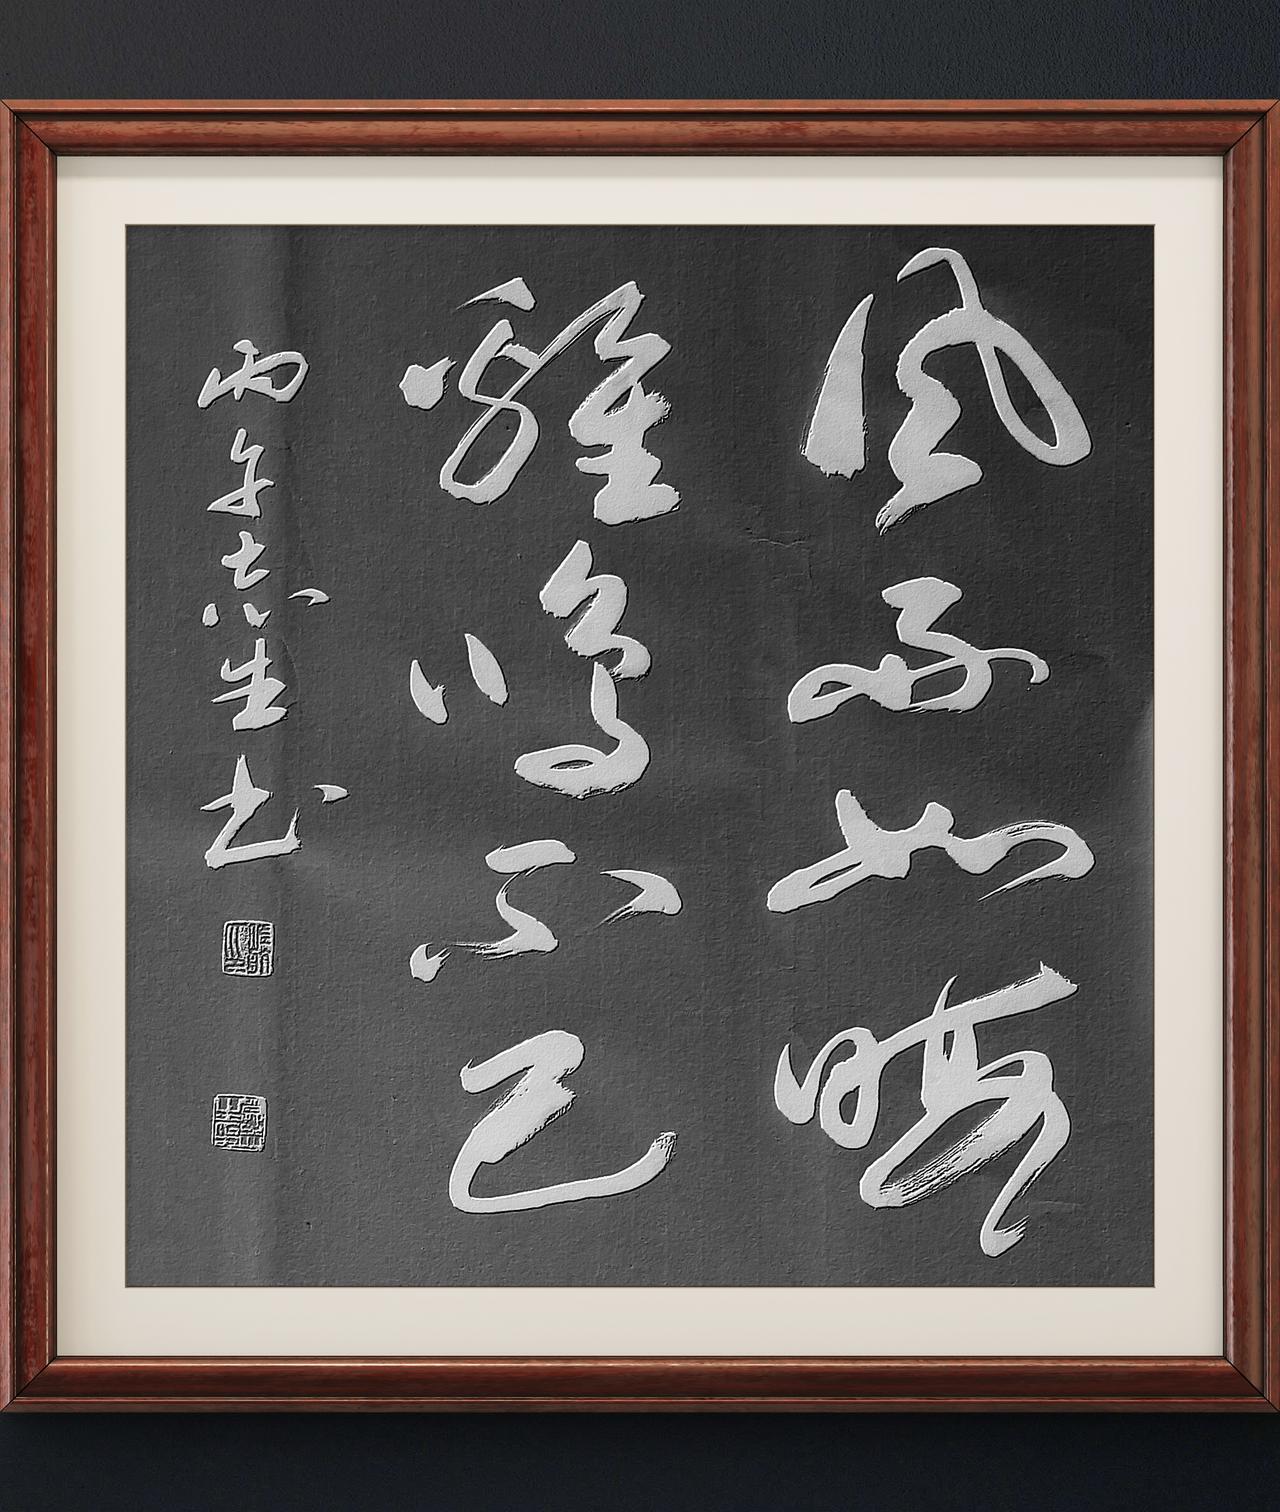 風雨如晦
雞鳴不已
丙午志生书